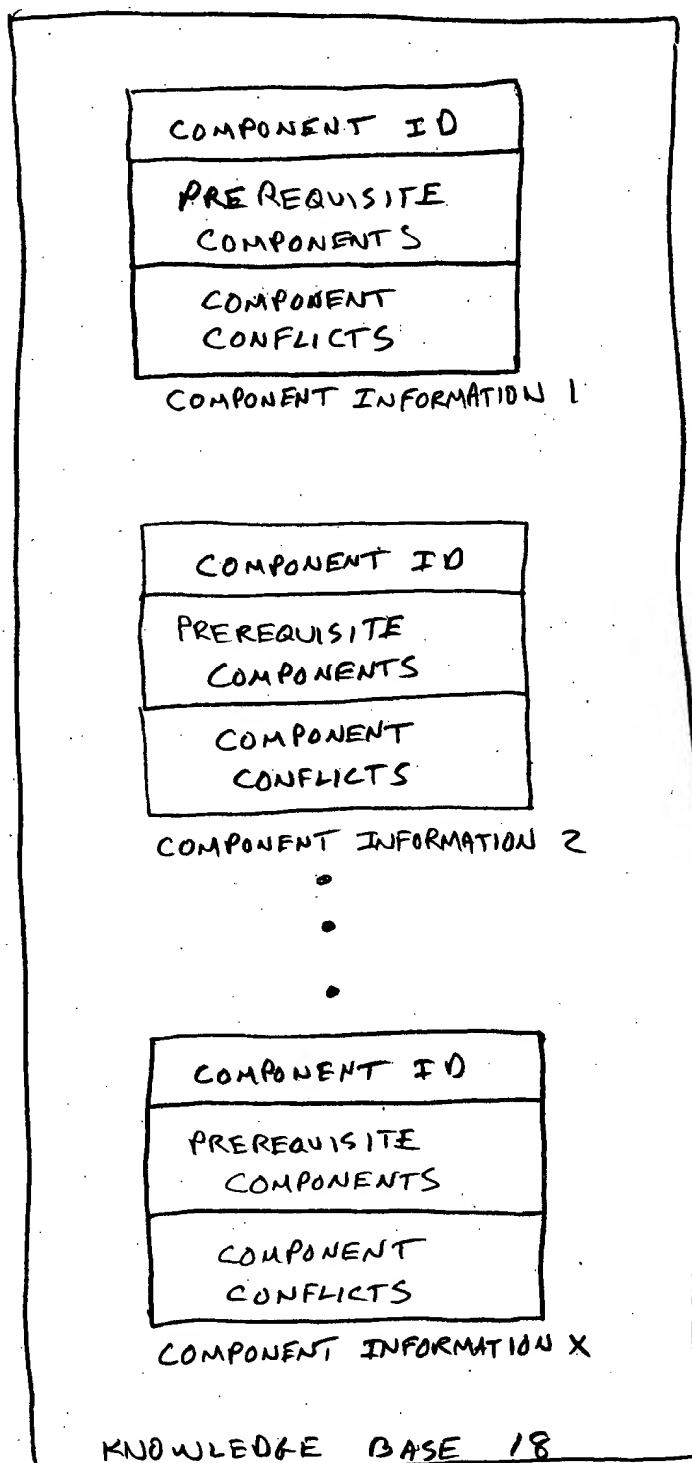 COMPONENT ID
PREREQUISITE
COMPONENTS
COMPONENT
CONFLICTS
COMPONENT INFORMATION 1
COMPONENT ID
PREREQUISITE
COMPONENTS
COMPONENT
CONFLICTS
COMPONENT INFORMATION 2
COMPONENT ID
PREREQUISITE
COMPONENTS
COMPONENT
CONFLICTS
COMPONENT INFORMATION X
KNOWLEDGE BASE 18